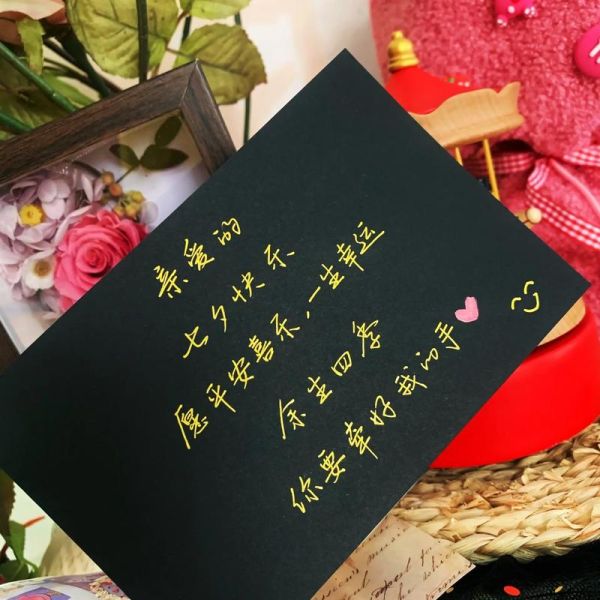 亲爱的
七夕快乐
愿平安喜乐，一生幸运
余生四季
你要牵好我的手